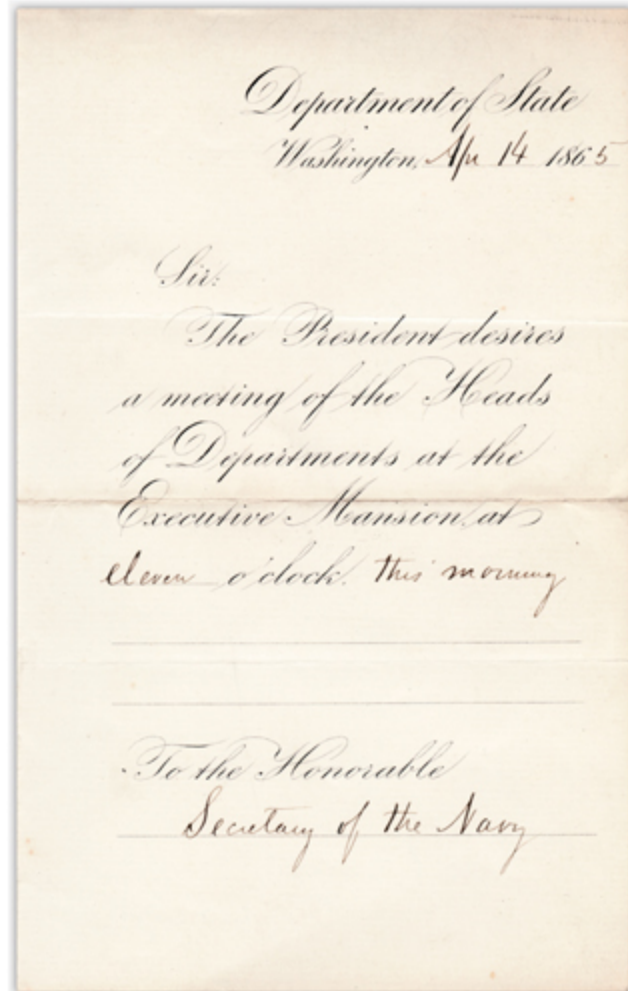 Department of State
Washington, Apr 14 1865
Sir:
The President desires
a meeting of the Heads
of Departments at the
Executive Mansion, at
eleven o'clock. this morning
To the Honorable
Secretary of the Navy